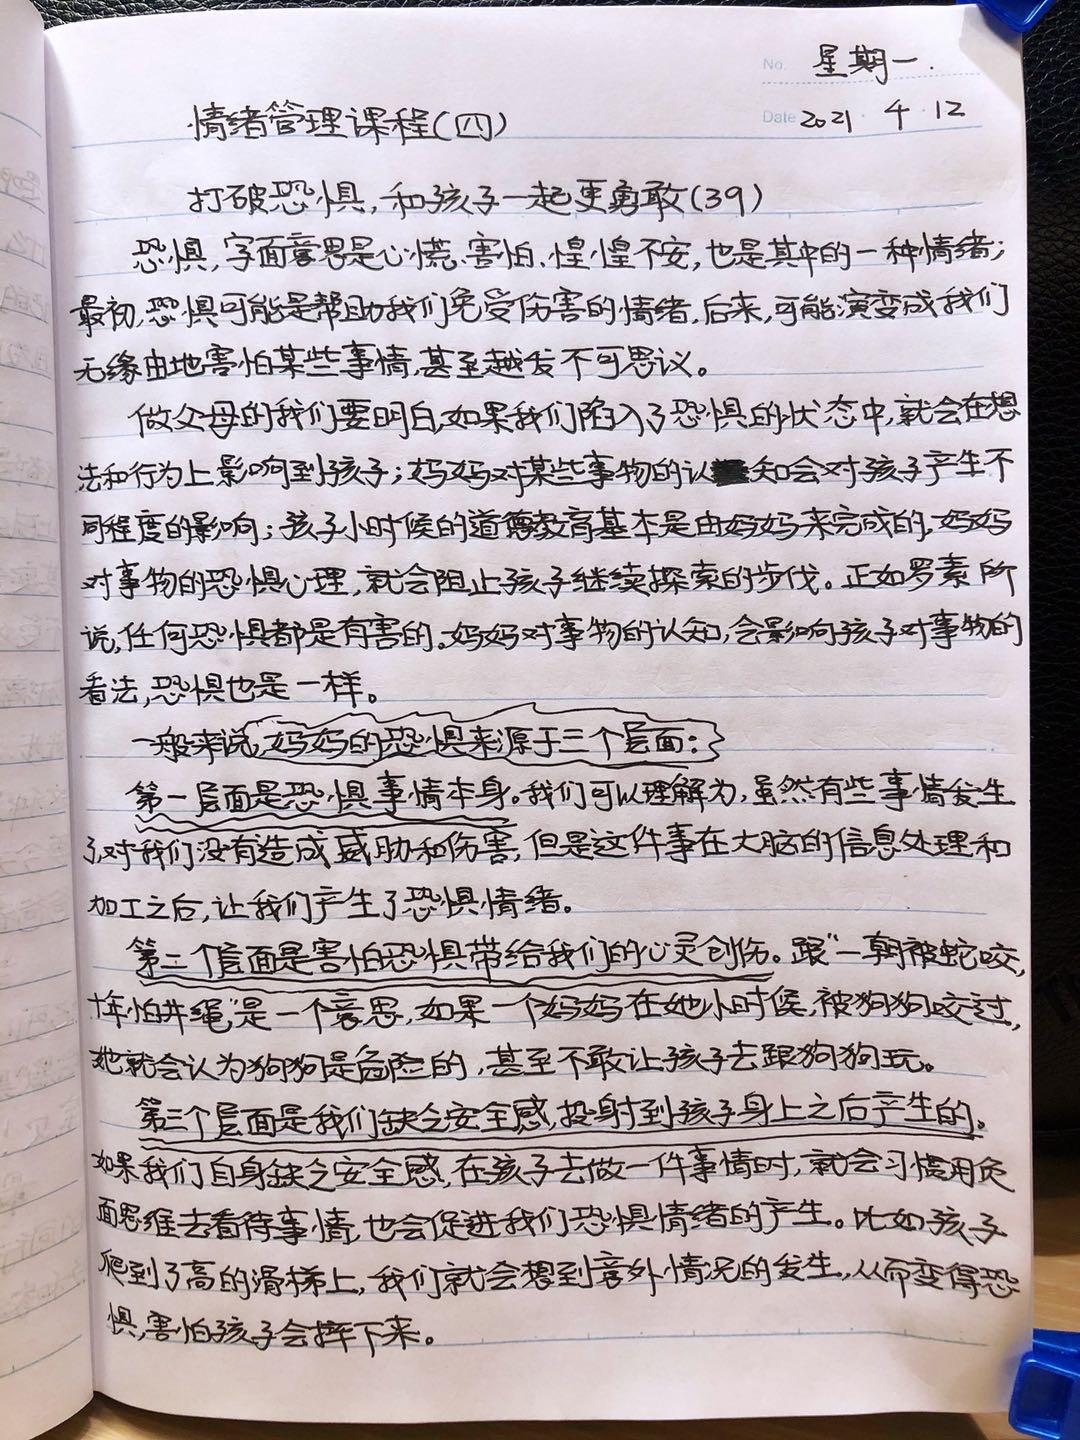 No. 星期一.
Date 2021 · 4 · 12
情绪管理课程(四)
打破恐惧,和孩子一起更勇敢(39)
恐惧,字面意思是心慌、害怕、惶惶不安,也是其中的一种情绪;
最初,恐惧可能是帮助我们免受伤害的情绪,后来,可能演变成我们
无缘由地害怕某些事情,甚至越发不可思议。
做父母的我们要明白,如果我们陷入了恐惧的状态中,就会在想
法和行为上影响到孩子;妈妈对某些事物的认知会对孩子产生不
同程度的影响;孩子小时候的道德教育基本是由妈妈来完成的,妈妈
对事物的恐惧心理,就会阻止孩子继续探索的步伐。正如罗素所
说,任何恐惧都是有害的。妈妈对事物的认知,会影响孩子对事物的
看法,恐惧也是一样。
一般来说,妈妈的恐惧来源于三个层面:
第一层面是恐惧事情本身。我们可以理解为,虽然有些事情发生
了,对我们没有造成威胁和伤害,但是这件事在大脑的信息处理和
加工之后,让我们产生了恐惧情绪。
第二个层面是害怕恐惧带给我们的心灵创伤。跟“一朝被蛇咬,
十年怕井绳”是一个意思,如果一个妈妈在她小时候,被狗狗咬过,
她就会认为狗狗是危险的,甚至不敢让孩子去跟狗狗玩。
第三个层面是我们缺乏安全感,投射到孩子身上之后产生的。
如果我们自身缺乏安全感,在孩子去做一件事情时,就会习惯用负
面思维去看待事情,也会促进我们恐惧情绪的产生。比如孩子
爬到了高的滑梯上,我们就会想到意外情况的发生,从而变得恐
惧,害怕孩子会摔下来。